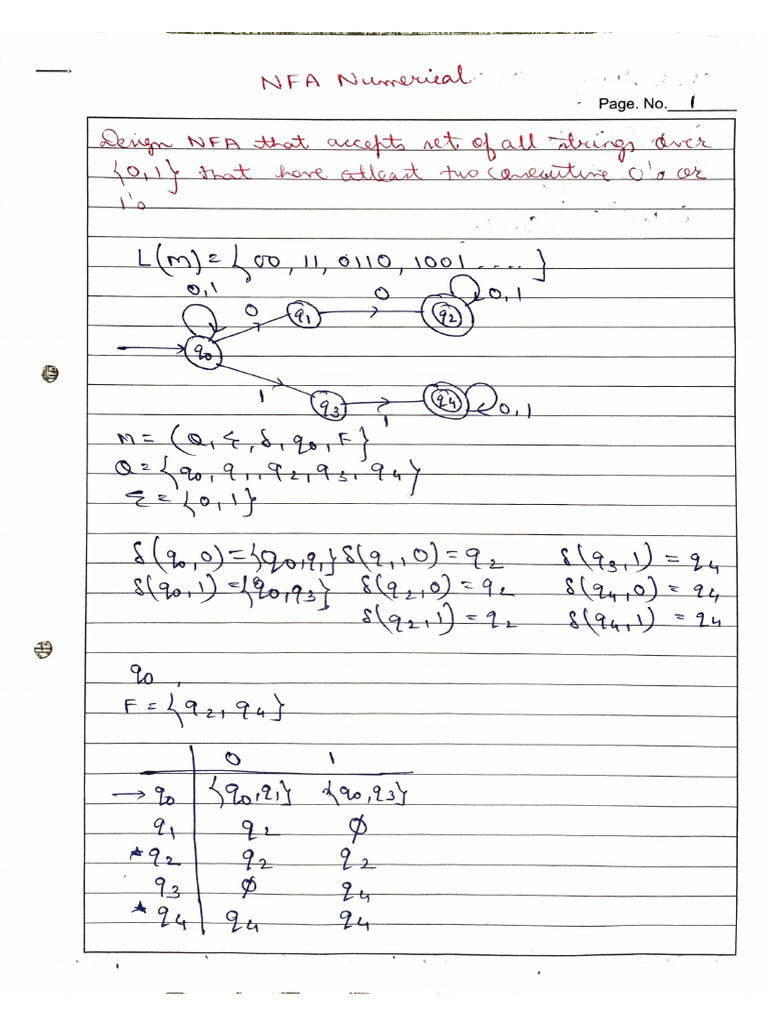 NFA Numerical
Page. No. 1
Design NFA that accepts set of all strings over
{0,1} that have atleast two consecutive 0's or
1's
L(M) = {00, 11, 0110, 1001 ....}
0,1
0
q1
0
q2
0,1
q0
1
q3
1
q4
0,1
M = (Q, Σ, δ, q0, F}
Q = {q0, q1, q2, q3, q4}
Σ = {0,1}
δ(q0,0) = {q0,q1} δ(q1,0) = q2 δ(q3,1) = q4
δ(q0,1) = {q0,q3} δ(q2,0) = q2 δ(q4,0) = q4
δ(q2,1) = q2 δ(q4,1) = q4
q0,
F = {q2, q4}
0 1
→ q0 {q0,q1} {q0,q3}
q1 q2 ϕ
* q2 q2 q2
q3 ϕ q4
* q4 q4 q4